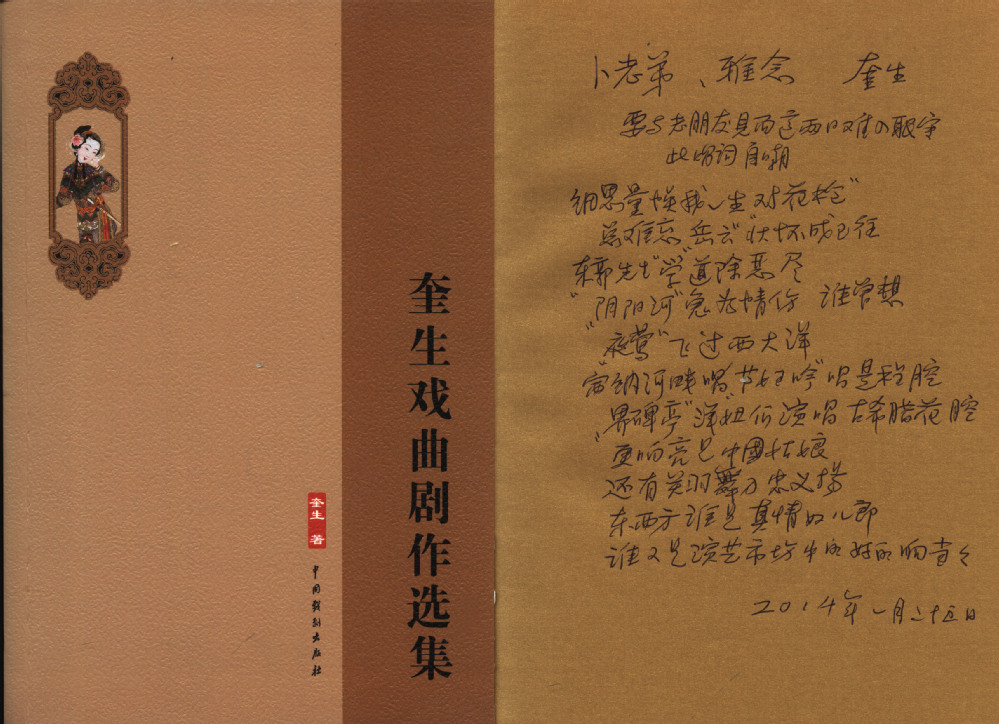 奎生戏曲剧作选集
奎生 著
中国戏剧出版社
卜老弟、雅念 奎生
要与老朋友见面这两口难以
此 词自嘲
细思量 我一生对花枪"
总难忘"岳云"壮怀成已往
东郭先生"学"道除恶尽
"阴阳河"急为情伤 谁曾想
"莺"飞过西大洋
"富 河畔唱"节妇吟"唱是程腔
"界碑亭""洋"妞们演唱古希腊花腔
更响亮是中國姑娘
还有关羽舞刀忠义扬
东西方谁是真情好儿郎
谁又是演艺市坊中的好的响当々
2014年一月二十五日